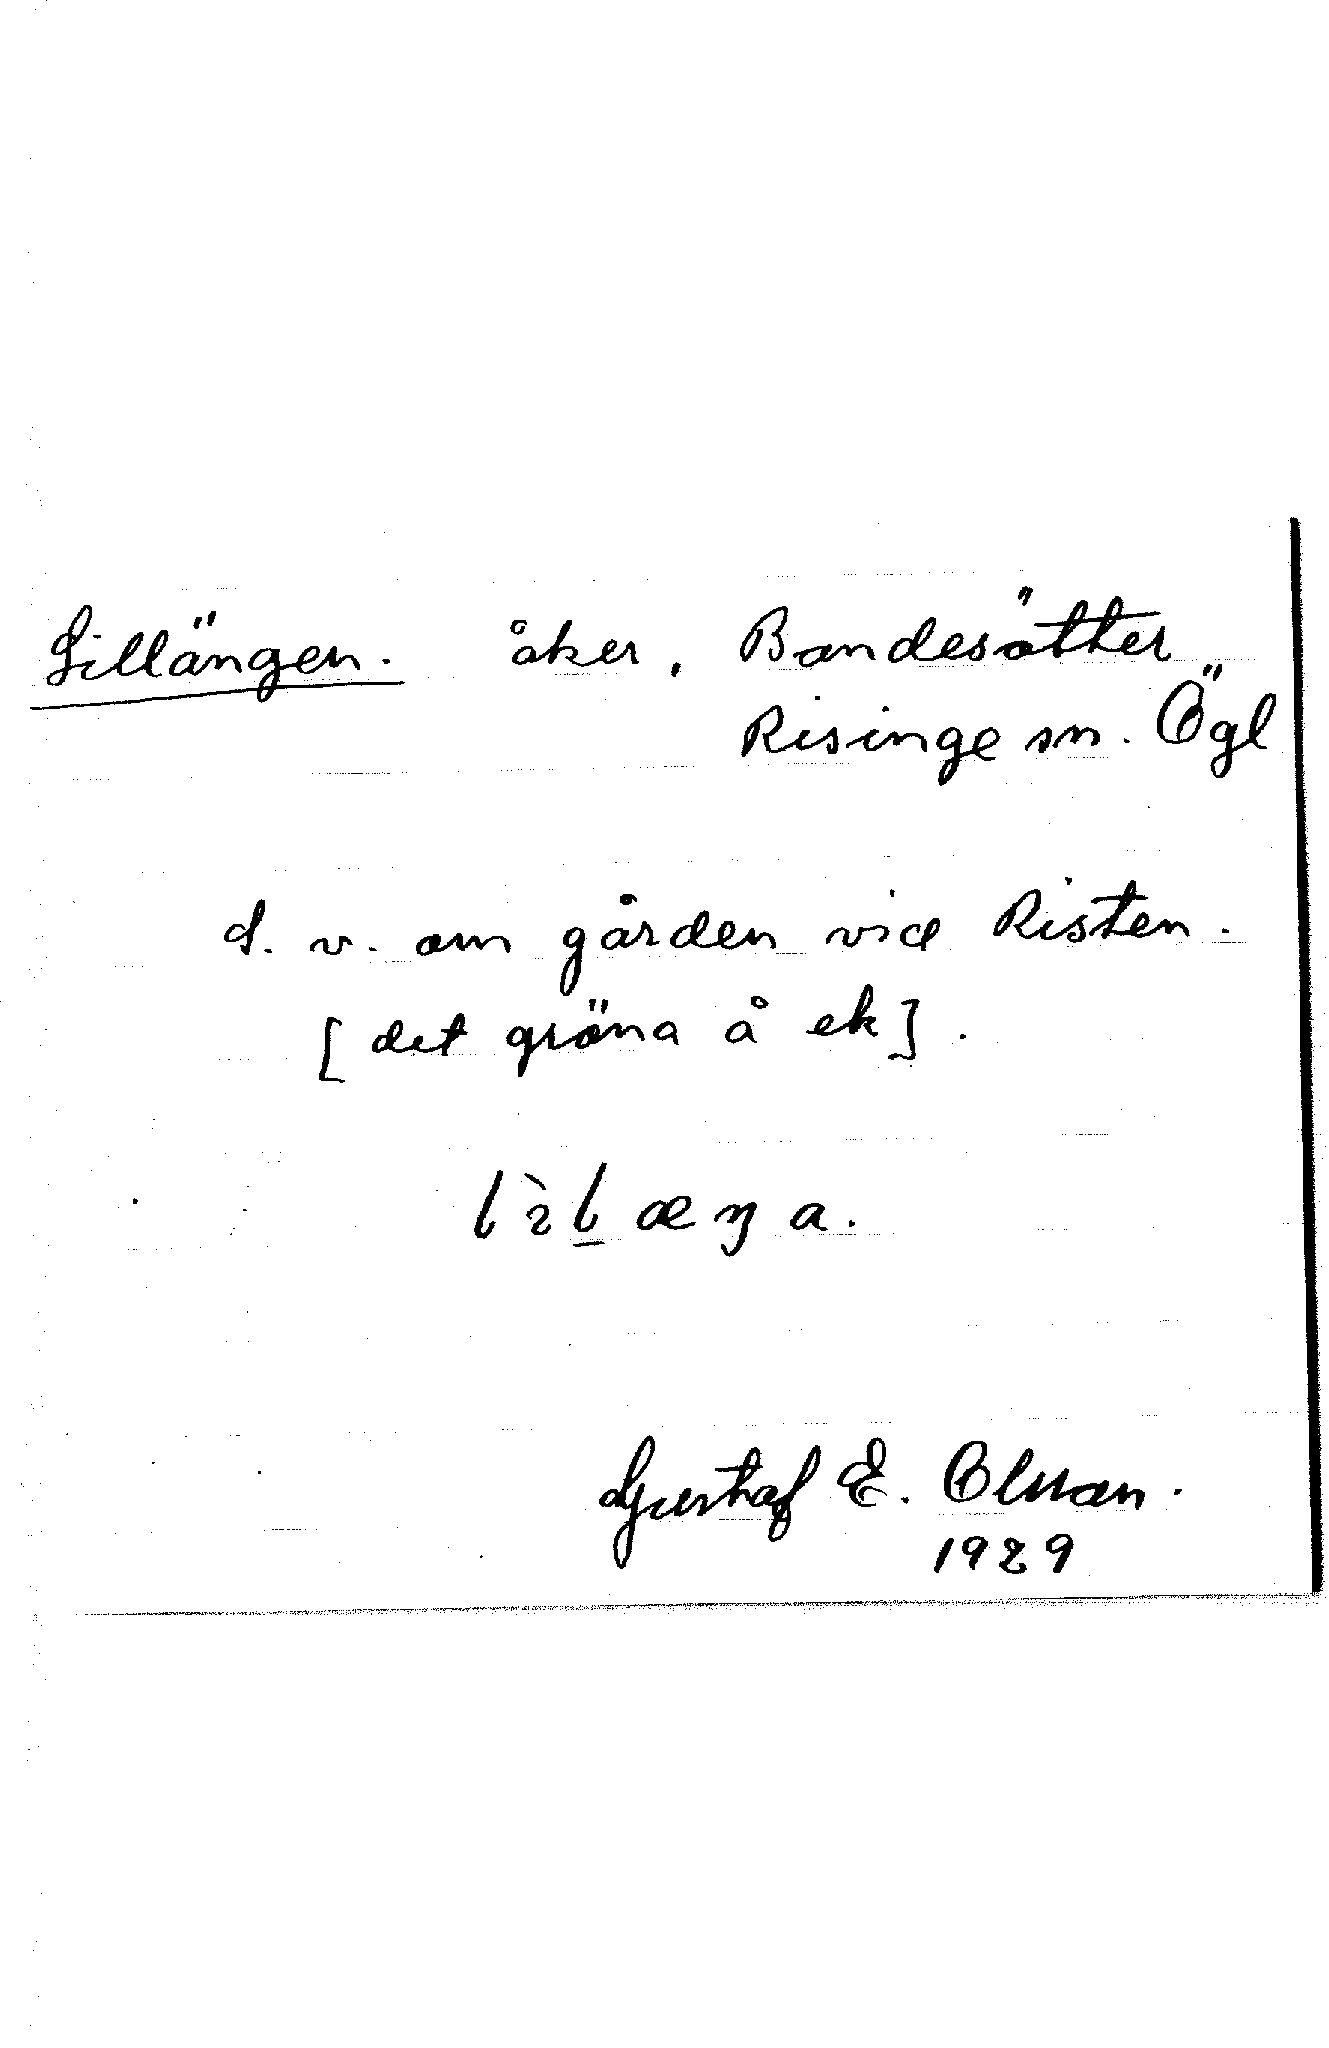 Lillängen. åker, Bandesätter
Risinge sn. Ögl
S. v. om gården vid Risten.
[det gröna å ek].
lìlæŋa.
Gustaf E. Olsson.
1929